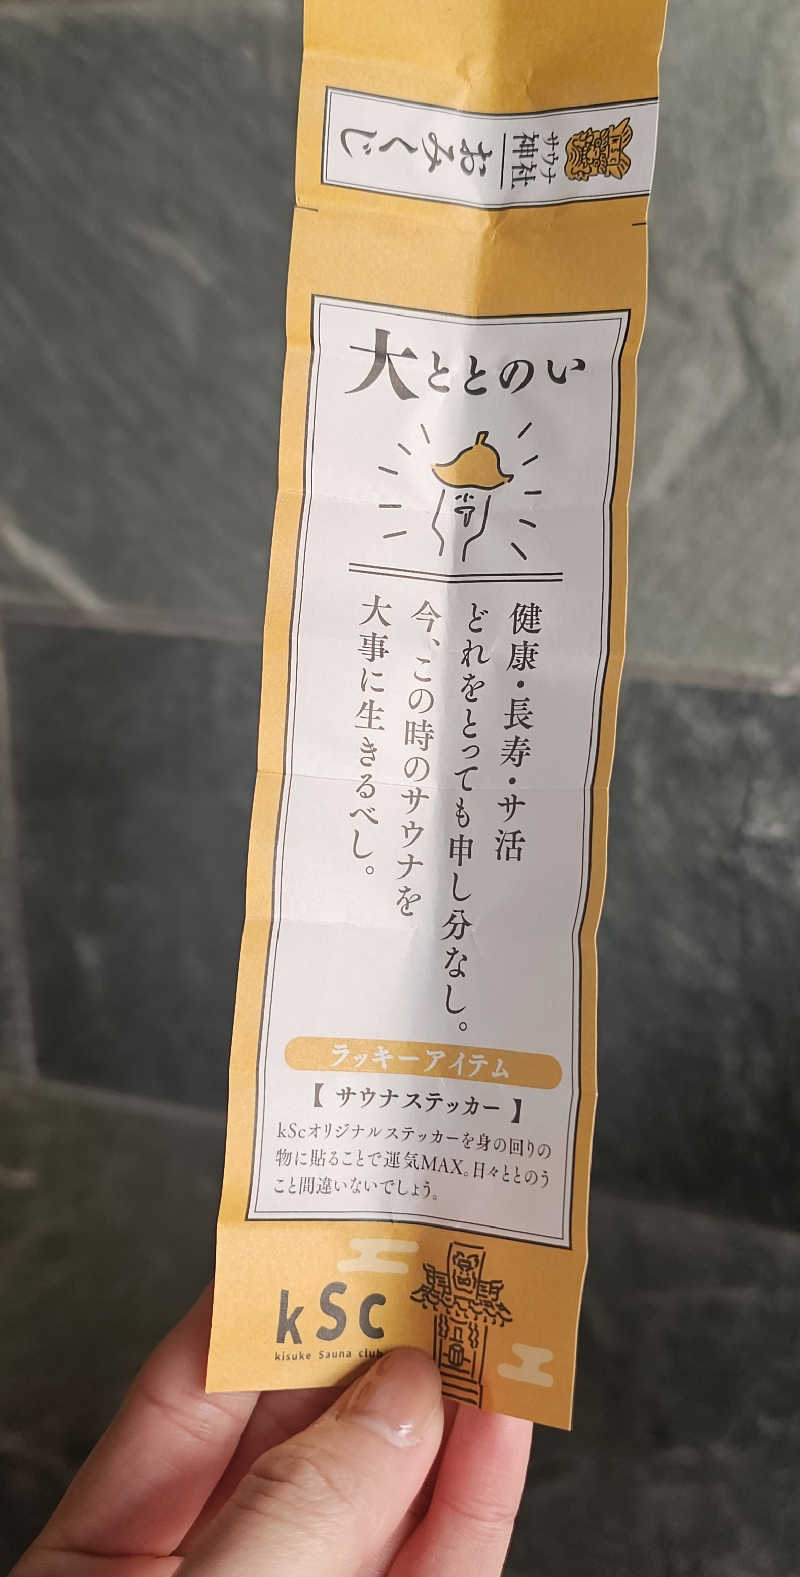 サウナ
神社
おみくじ
大ととのい
健康・長寿・サ活
どれをとっても申し分なし。
今、この時のサウナを
大事に生きるべし。
ラッキーアイテム
【 サウナステッカー 】
kScオリジナルステッカーを身の回りの
物に貼ることで運気MAX。日々ととのう
こと間違いないでしょう。
kSc
kisuke Sauna club